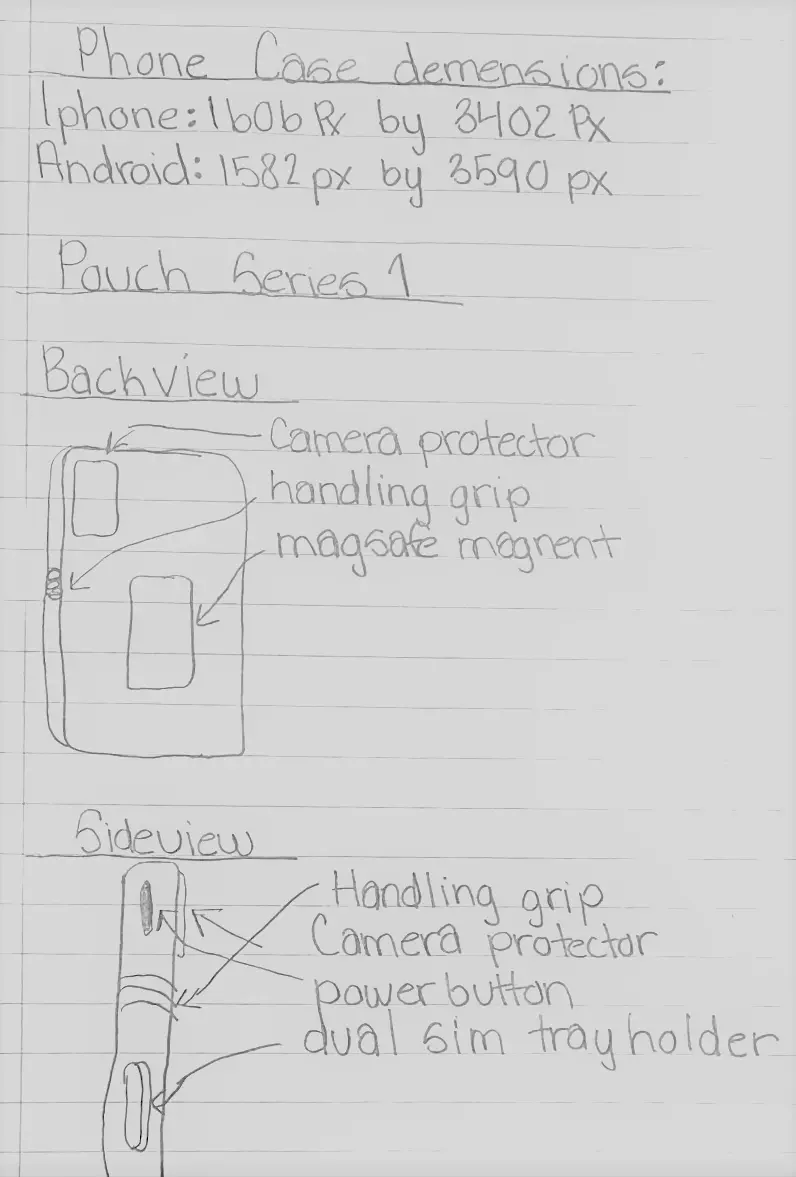 Phone Case demensions:
Iphone: 1606 Px by 3402 Px
Android: 1582 px by 3590 px
Pouch Series 1
Back view
Camera protector
handling grip
magsafe magnent
Sideview
Handling grip
Camera protector
power button
dual sim tray holder